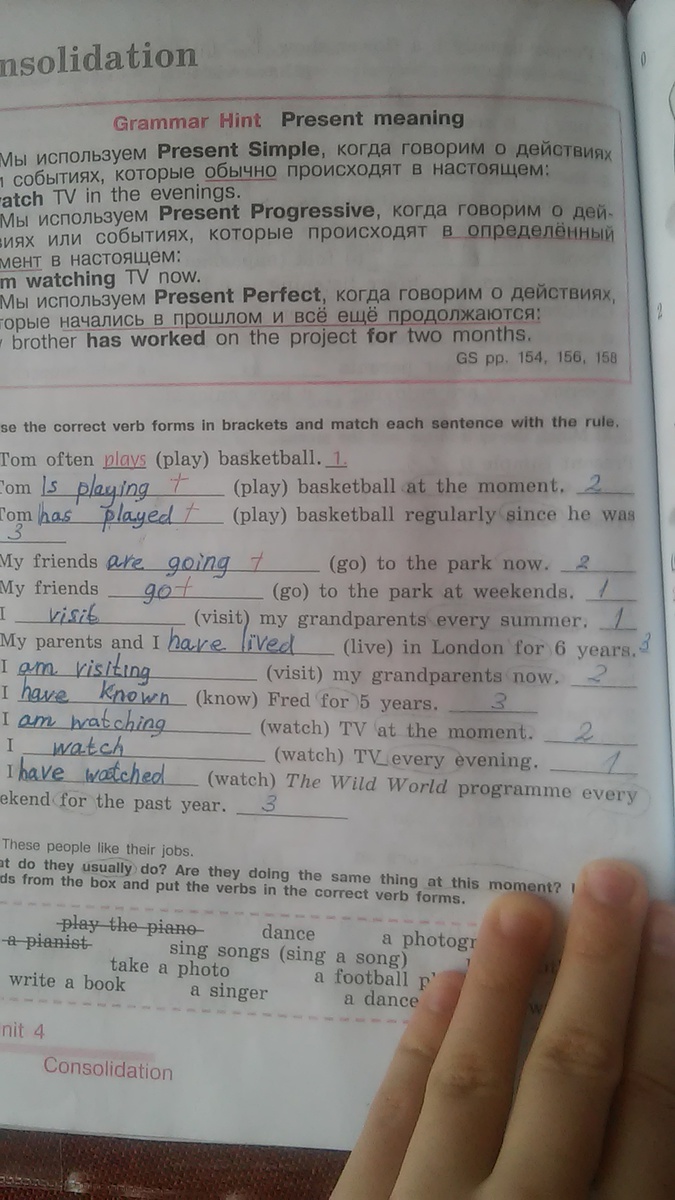 nsolidation
Grammar Hint Present meaning
Мы используем Present Simple, когда говорим о действиях
и событиях, которые обычно происходят в настоящем:
watch TV in the evenings.
Мы используем Present Progressive, когда говорим о дей-
виях или событиях, которые происходят в определённый
мент в настоящем:
m watching TV now.
Мы используем Present Perfect, когда говорим о действиях,
торые начались в прошлом и всё ещё продолжаются:
y brother has worked on the project for two months.
GS pp. 154, 156, 158
se the correct verb forms in brackets and match each sentence with the rule.
Tom often plays (play) basketball. 1.
Tom is playing + (play) basketball at the moment. 2
Tom has played + (play) basketball regularly since he was
3
My friends are going + (go) to the park now. 2
My friends go + (go) to the park at weekends. 1
I visit (visit) my grandparents every summer. 1
My parents and I have lived (live) in London for 6 years. 3
I am visiting (visit) my grandparents now. 2
I have known (know) Fred for 5 years. 3
I am watching (watch) TV at the moment. 2
I watch (watch) TV every evening. 1
I have watched (watch) The Wild World programme every
eekend for the past year. 3
These people like their jobs.
at do they usually do? Are they doing the same thing at this moment?
ds from the box and put the verbs in the correct verb forms.
play the piano dance a photogr
a pianist sing songs (sing a song)
take a photo a football pl
write a book a singer a dance
nit 4
Consolidation